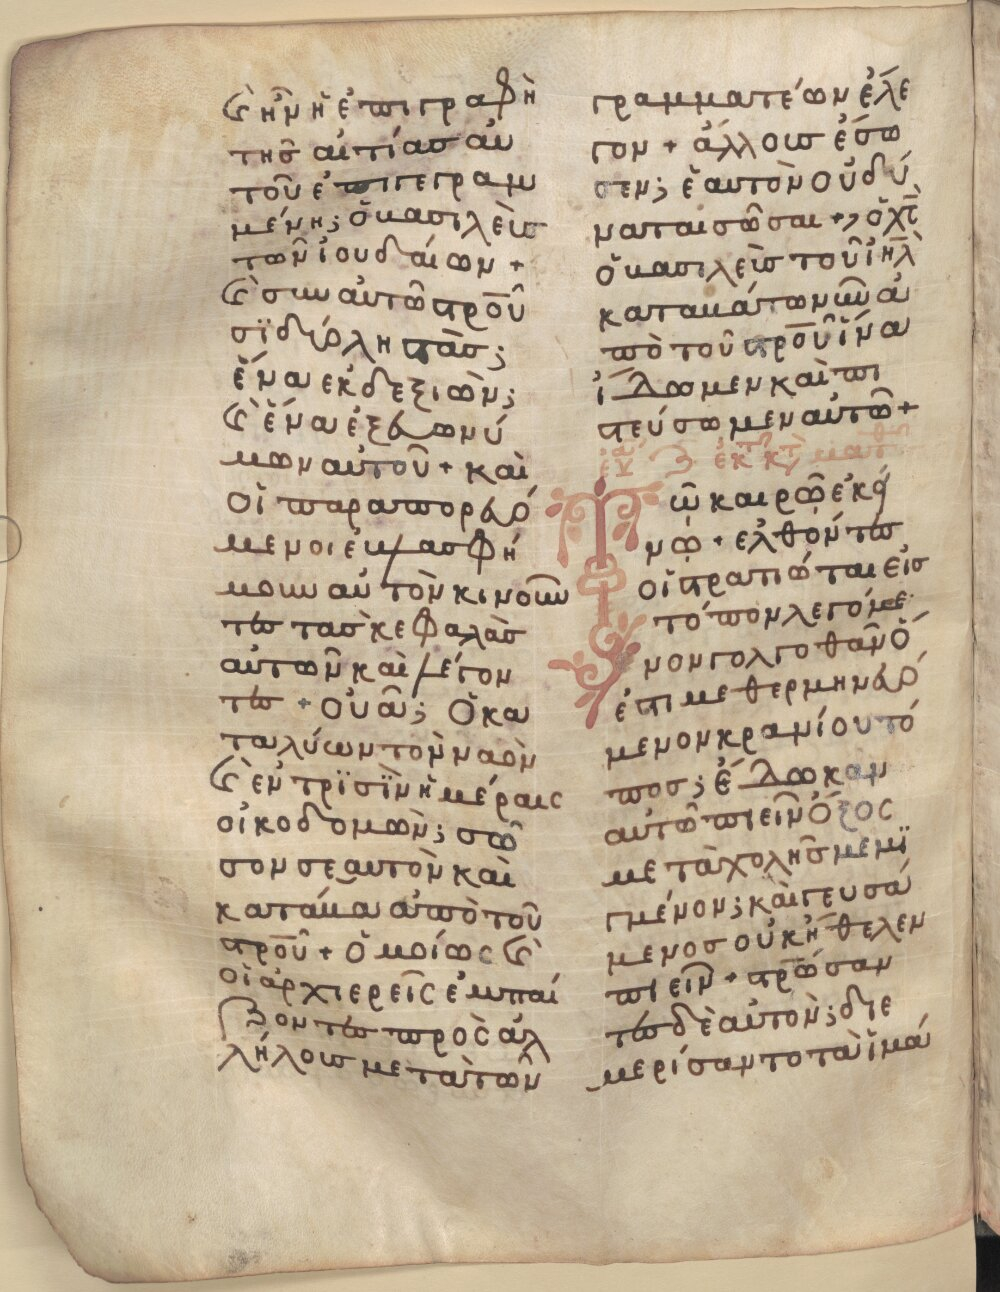 Καὶ ἦν ἡ ἐπιγραφὴ
τῆς αἰτίας αὐ
τοῦ ἐπιγεγραμ
μένη; ὁ βασιλεὺς
τῶν ἰουδαίων +
Καὶ σὺν αὐτῶ στρου
σϊ δύο ληστάς;
ἕνα ἐκ δεξιῶν;
Καὶ ἕνα ἐξ εὐωνύ
μων αὐτοῦ + καὶ
Οἱ παραπορευό
μενοι ἐβλασφή
μουν αὐτὸν κινοῦν
τες τὰς κεφαλὰς
αὐτῶν καὶ λέγον
τες + Οὐὰ; Ὁ κα
ταλύων τὸν ναὸν
Καὶ ἐν τρϊσὶν ἡμέραις
οἰκοδομῶν; σῶ
σον σεαυτὸν καὶ
κατάβα ἀπὸ τοῦ
στρου + Ὁμοίως Καὶ
οἱ ἀρχιερεῖς ἐμπαί
ζοντες πρὸς ἀλ
λήλους μετὰ τῶν
γραμματέων ἔλε
γον + ἄλλους ἔσω
σεν; ἑαυτὸν οὐ δύ
ναται σῶσαι +, ὁ χς
ὁ βασιλεὺς τοῦ ιηλ
καταβάτω νῦν ἀ
πὸ τοῦ στρου ἵνα
ἴδωμεν καὶ πι
στεύσωμεν αὐτῶ +
Τῶ καιρῶ ἐκεί
νω + ἐλθόντες
οἱ στρατιῶται εἰς
τόπον λεγόμε
νον γολγοθᾶν ὅ
ἐστι μεθερμηνευό
μενον κρανίου τό
πος; ἔδωκαν
αὐτῶ πιεῖν ὄξος
μετὰ χολῆς μεμϊ
γμένον; καὶ γευσά
μενος οὐκ ἤθελεν
πιεῖν + στρώσαν
τες δὲ αὐτὸν; διε
μερίσαντο τὰ ἱμά